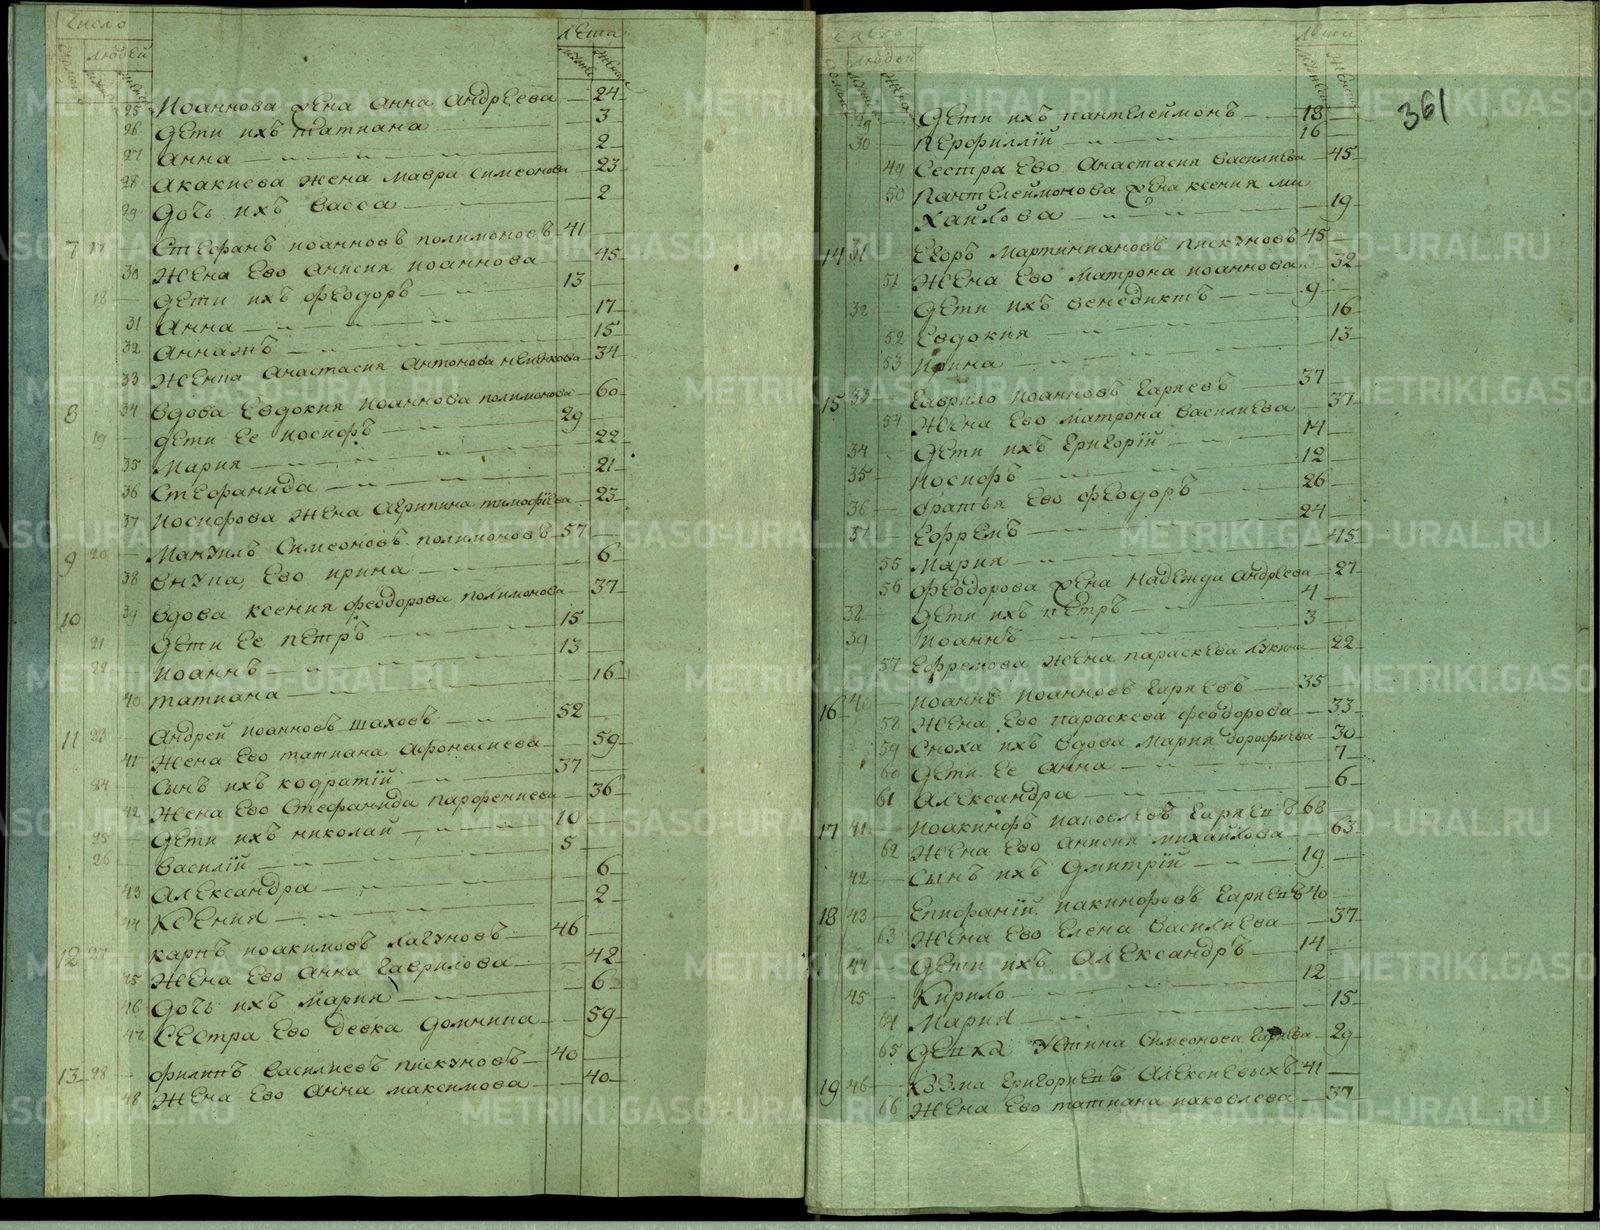 Число Лета
Людей
25 Иоаннова жена Анна Андреева — 24
26 Дети ихъ Татиана — 3
27 Анна — 2
28 Акакиева жена Мавра Симеонова — 23
29 Дочь ихъ Васса — 2
7 17 Стефанъ Иоанновъ Полимоновъ 41
30 Жена Ево Анисия Иоаннова — 45
18 Дети ихъ Феодоръ — 13
31 Анна — 17
32 Аннажъ — 15
33 Анастасия Антонова — 34
8 34 Вдова Евдокия Иоаннова Полимонова — 60
19 Дети Ее Иосифъ — 29
35 Мария — 22
36 Стефанида — 21
37 Иосифова жена Агрипина Тимофеева — 23
9 20 Мануилъ Симеоновъ Полимоновъ — 57
38 Внука Ево Ирина — 6
10 39 Вдова Ксения Феодорова Полимонова — 37
21 Дети Ее Петръ — 15
22 Иоаннъ — 13
40 Татиана — 16
11 23 Андрей Иоанновъ Шаховъ — 52
41 Жена Ево Татиана Афонасиева — 59
24 Сынъ ихъ Кодратiй — 37
42 Жена Ево Стефанида Парфениева — 36
25 Дети ихъ Николай — 10
26 Василiй — 5
43 Александра — 6
44 Ксения — 2
12 27 Карпъ Иоакимовъ Лагуновъ — 46
45 Жена Ево Анна Гаврилова — 42
46 Дочь ихъ Мария — 6
47 Сестра Ево Девка Домнина — 59
13 28 Филипъ Василиевъ Пискуновъ — 40
48 Жена Ево Анна Максимова — 40
Число Лета
Людей
361
29 Дети ихъ Пантелеймонъ — 18
30 Перфиллiй — 16
49 Сестра Ево Анастасия Василиева — 45
50 Пантелеймонова жена Ксения Ми
хайлова — 19
14 31 Егоръ Мартиниановъ Пискуновъ 45
51 Жена Ево Матрона Иоаннова — 32
32 Дети ихъ Венедиктъ — 9
52 Евдокия — 16
53 Ирина — 13
15 33 Гаврило Иоанновъ Гаряевъ — 37
54 Жена Ево Матрона Василиева — 37
34 Дети ихъ Григорiй — 14
35 Иосифъ — 12
36 Братья Ево Феодоръ — 26
37 Ефремъ — 24
55 Мария — 45
56 Феодорова жена Надежда Андреева — 27
38 Дети ихъ Петръ — 4
39 Иоаннъ — 3
57 Ефремова жена Параскева Лукина — 22
16 40 Иоаннъ Иоанновъ Гаряевъ — 35
58 Жена Ево Параскева Феодорова — 33
59 Сноха ихъ Вдова Мария Дорофиева — 30
60 Дети Ее Анна — 7
61 Александра — 6
17 41 Иоакинфъ Гаряевъ 68
62 Жена Ево Анисия Михайлова — 63
42 Сынъ ихъ Дмитрiй — 19
18 43 Епифанiй Иакинфовъ Гаряевъ 40
63 Жена Ево Елена Василиева — 37
44 Дети ихъ Александръ — 14
45 Кирило — 12
64 Мария — 15
65 Девка Устина Симеонова Гаряева — 29
19 46 Козма Григориевъ Алексиевыхъ 41
66 Жена Ево Татиана Иаковлева — 37
METRIKI.GASO-URAL.RU